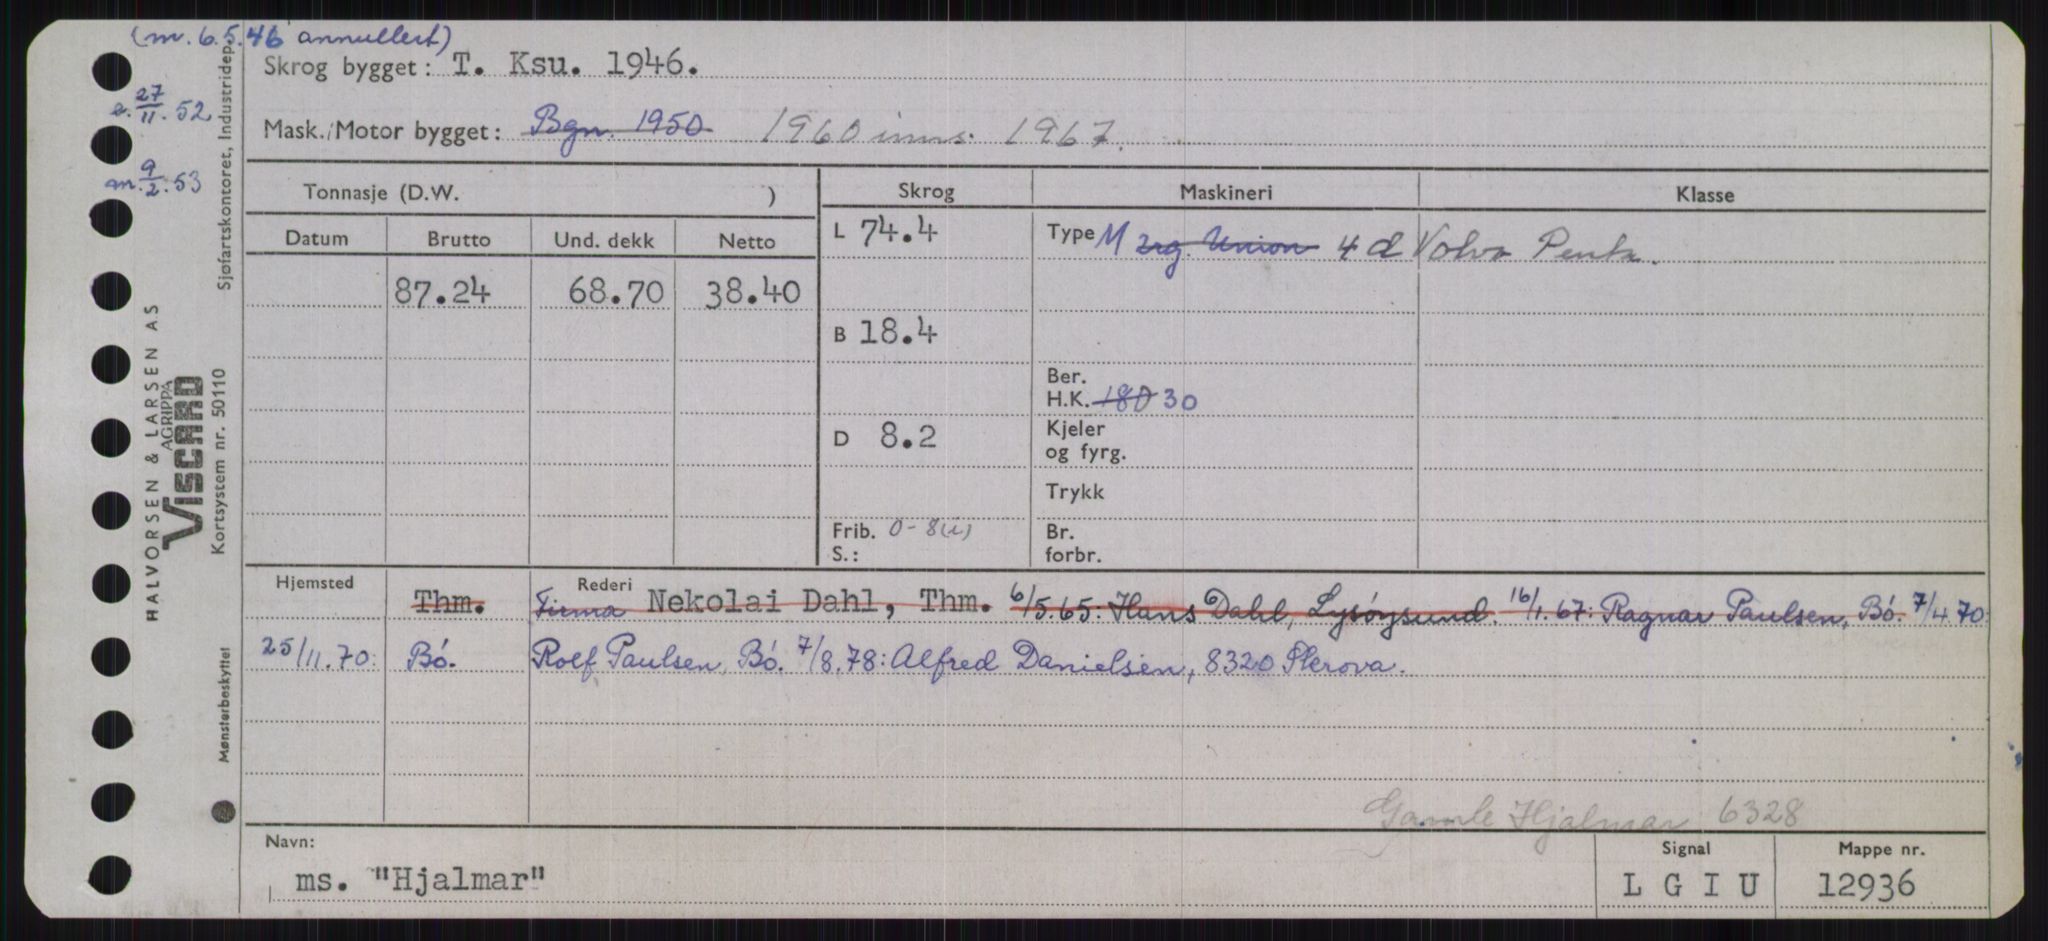 (m. 6.5.46 annullert)
Skrog bygget: T. Ksu. 1946.
27/11. 52
Mask./Motor bygget: Bgn. 1950 1960 inns. 1967.
m. 9/2. 53
Tonnasje (D.W. )
Skrog
Maskineri
Klasse
Datum Brutto Und. dekk Netto
87.24 68.70 38.40
L 74.4
B 18.4
D 8.2
Frib. 0-8(u)
S.:
Type M 2rg. Union 4 d Volvo Penta.
Ber.
H.K. 180 30
Kjeler
og fyrg.
Trykk
Br.
forbr.
Hjemsted Rederi
Thm. Firma Nekolai Dahl, Thm. 6/5.65: Hans Dahl, Lysøysund. 16/1.67: Ragnar Paulsen, Bö. 7/4.70:
25/11.70: Bö. Rolf Paulsen, Bö. 7/8.78: Alfred Danielsen, 8320 Skrova.
Gamle Hjalmar 6328
Navn:
ms. "Hjalmar"
Signal
L G I U
Mappe nr.
12936
HALVORSEN & LARSEN AS
VISCARD
AGRIPPA
Kortsystem nr. 50110
Sjøfartskontoret, Industridep.
Mønsterbeskyttet